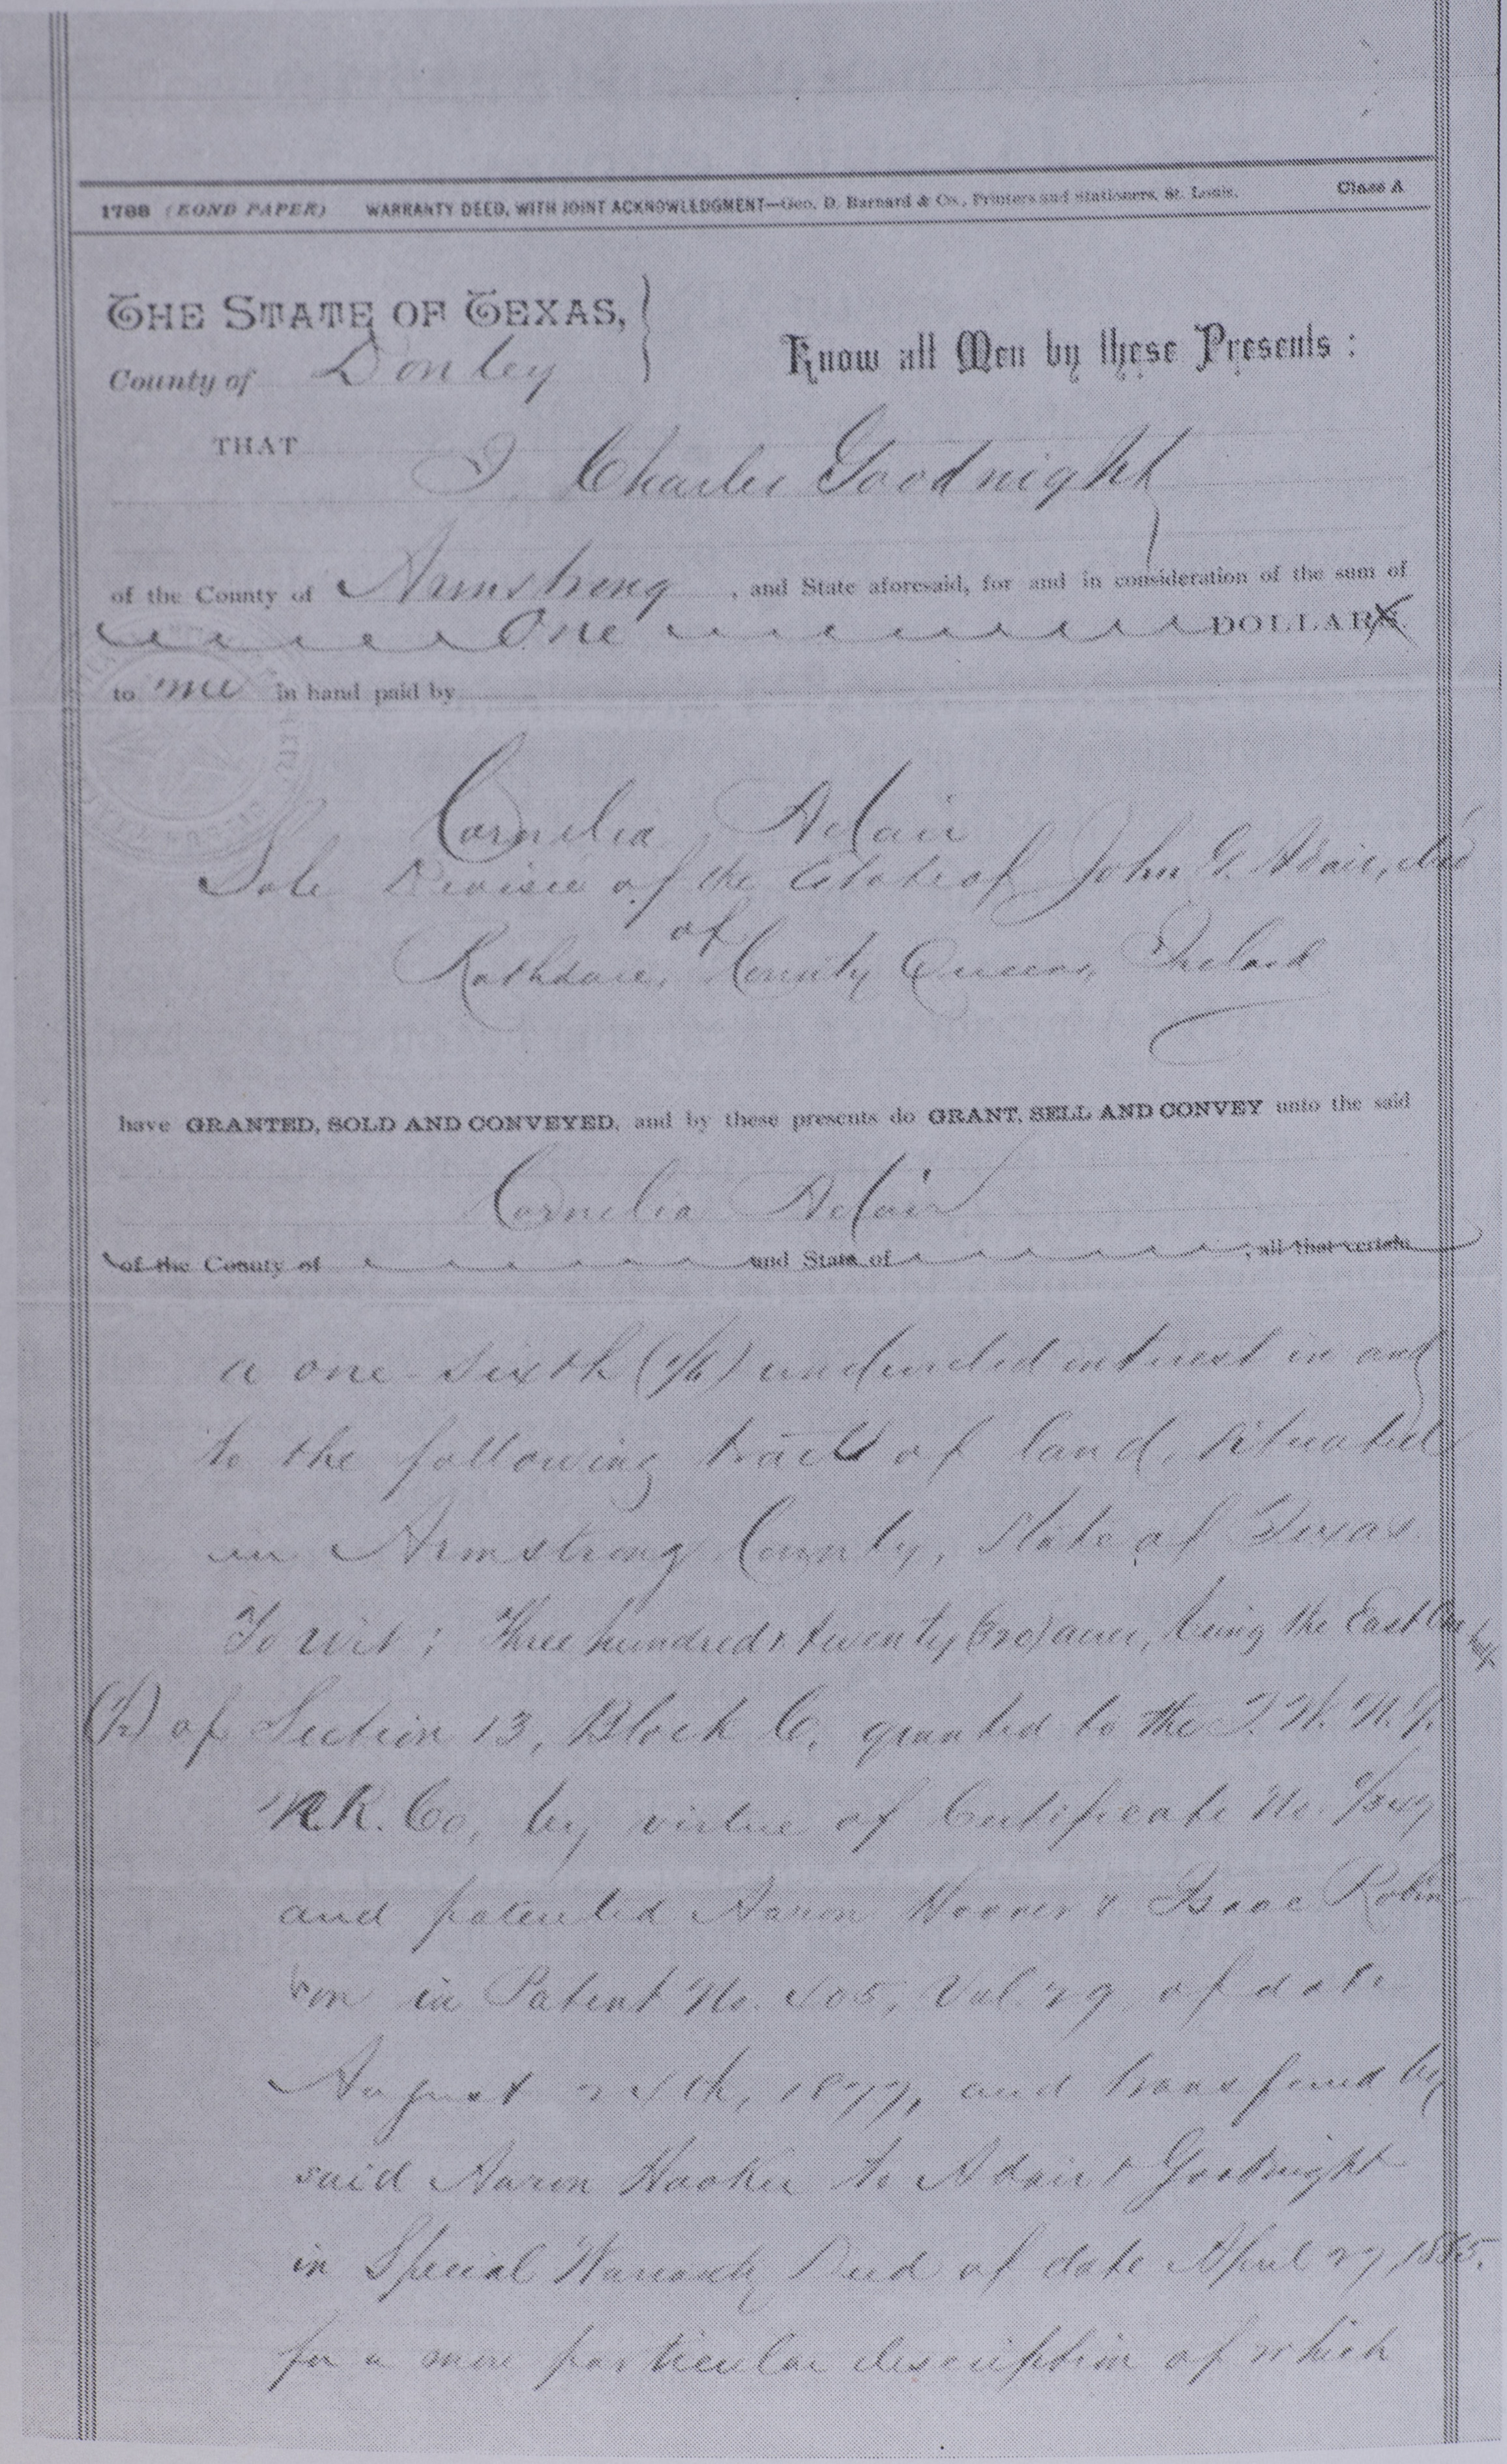 1788 (BOND PAPER) WARRANTY DEED, WITH JOINT ACKNOWLEDGMENT—Geo. D. Barnard & Co., Printers and Stationers, St. Louis. Class A
THE STATE OF TEXAS,
County of Donley
Know all Men by these Presents:
THAT
I Charles Goodnight
of the County of Armstrong, and State aforesaid, for and in consideration of the sum of
One DOLLARS
to me in hand paid by
Cornelia Adair
Sole Devisee of the Estate of John G. Adair, dec'd
of
Rathdaire, County Queens, Ireland
have GRANTED, SOLD AND CONVEYED, and by these presents do GRANT, SELL AND CONVEY unto the said
Cornelia Adair
of the County of and State of , all that certain
a one-sixth (1/6) undivided interest in and
to the following tract of land, situated
in Armstrong County, State of Texas.
To wit; Three hundred & twenty (320) acres, being the East One half
(1/2) of Section 13, Block C, granted to the T. W. N. G.
R.R. Co, by virtue of Certificate No.
and patented Aaron & Isaac Robin
son in Patent No. 405, Vol. 29 of date
August 24th, 1877, and transferred by
said Aaron Hooker to Adair & Goodnight
in Special Warranty Deed of date April 27, 1885.
for a more particular description of which